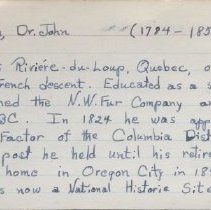 , Dr. John (1784-185
s Riviére-du-Loup, Quebec, o
rench descent. Educated as a s
ned the N.W. Fur Company an
BC. In 1824 he was app
Factor of the Columbia Dist
post he held until his retire
home in Oregon City in 18
s now a National Historic Site